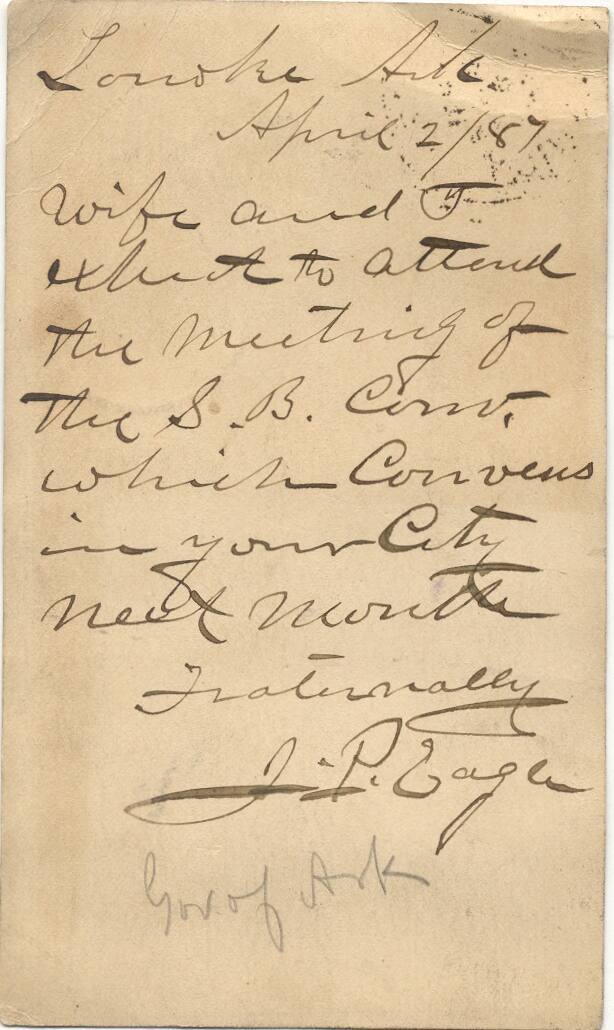 Lonoke Ark
April 2/87
Wife and I
expect to attend
the meeting of
the S. B. Conv.
which Convens
in your City
next month
Fraternally
J. P. Eagle
Gov. of Ark